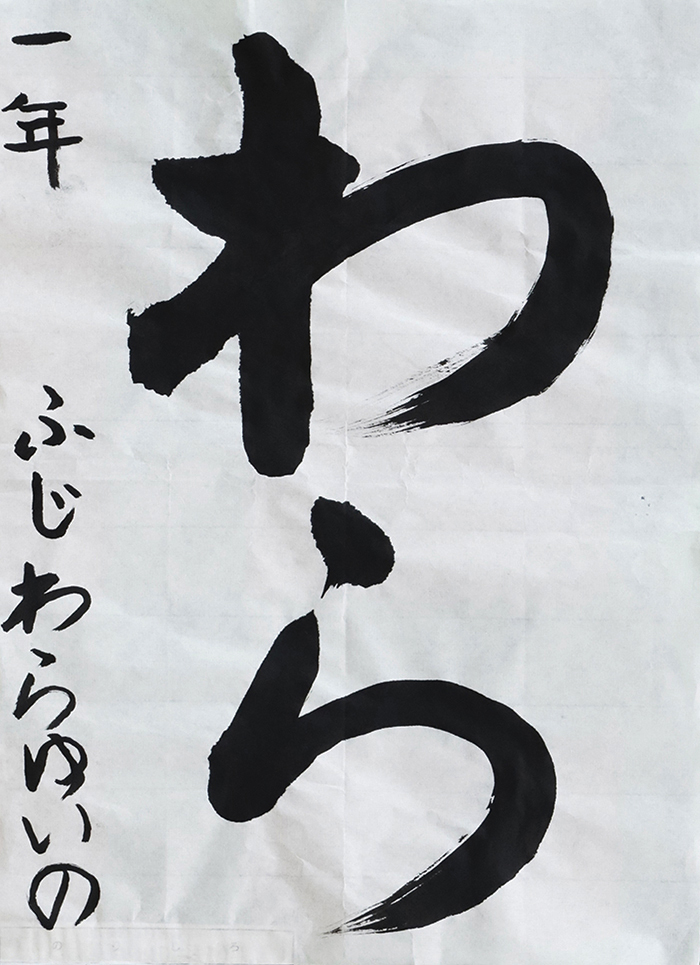 わら
一年 ふじわらゆいの